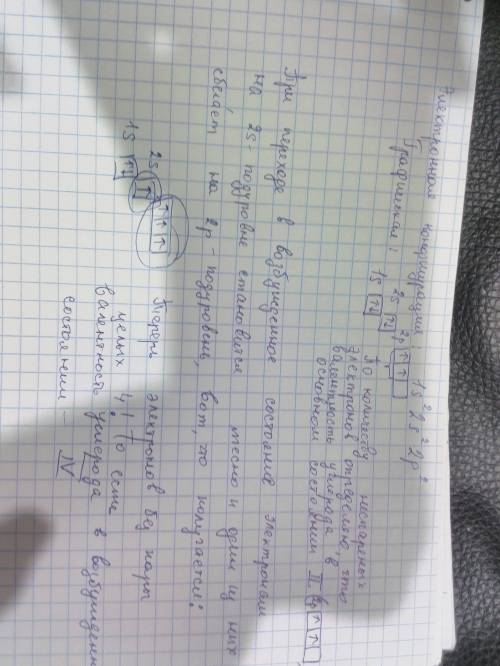 Электронная конфигурация 1s² 2s² 2p²
Графическая: 2s ↑↓ 2p ↑ ↑
1s ↑↓
По количеству неспаренных
электронов определяю, что
валентность углерода в
основном состоянии II 2p ↑ ↑
При переходе в возбужденное состояние электронам
на 2s подуровне становится тесно и один из них
сбегает на 2p-подуровень, вот, что получается:
2s ↑ ↑ ↑ ↑
1s ↑↓
Теперь электронов без пары
целых 4! То есть
валентность углерода в возбужденн
состоянии - IV